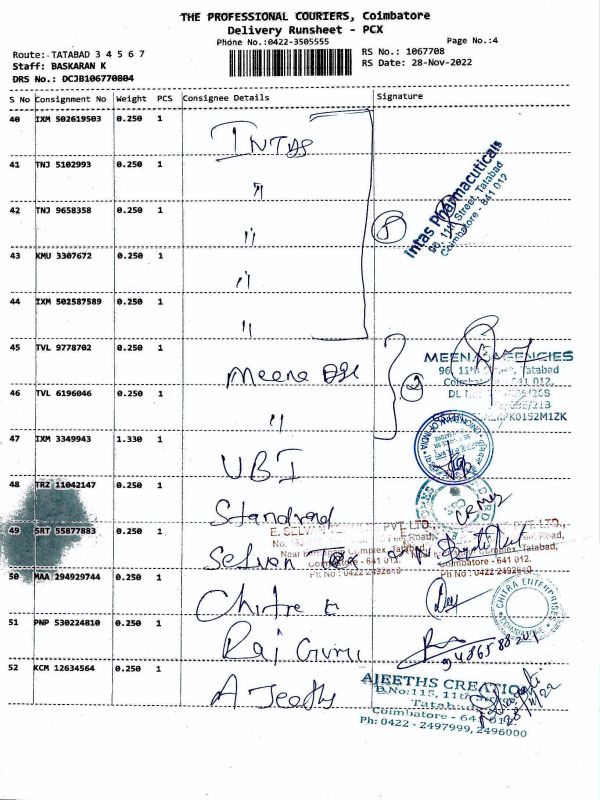 THE PROFESSIONAL COURIERS, Coimbatore
Delivery Runsheet - PCX
Phone No.:0422-3505555
Page No.:4
Route: TATABAD 3 4 5 6 7
RS No.: 1067708
Staff: BASKARAN K
RS Date: 28-Nov-2022
DRS No.: DCJB106770804
S No Consignment No Weight PCS Consignee Details Signature
40 IXM 502619503 0.250 1 INTAS
41 TNJ 5102993 0.250 1 "
42 TNJ 9658358 0.250 1 "
43 KMU 3307672 0.250 1 "
44 IXM 502587589 0.250 1 "
Intas Pharmacuticals
96, 11th Street, Tatabad
Coimbatore - 641 012
45 TVL 9778702 0.250 1 Meena
46 TVL 6196046 0.250 1 "
MEENA AGENCIES
96, 11th Street, Tatabad
Coimbatore 641 012.
47 IXM 3349943 1.330 1 UBI
UNION BANK OF INDIA
48 TRZ 11042147 0.250 1 Standrad
49 SRT 55877883 0.250 1 Selvan
PVT. LTD.,
Complex, Tatabad,
Coimbatore - 641 012.
Ph No : 0422-2492610
50 MAA 294929744 0.250 1 Chitra E
CHITRA ENTERPRISES
COIMBATORE
51 PNP 530224810 0.250 1 Raj Guru
52 KCM 12634564 0.250 1 AJeeths
AJEETHS CREATION
D.No:115, 11th
Tatabad
Coimbatore - 641 012
Ph: 0422 - 2497999, 2496000
28/11/22